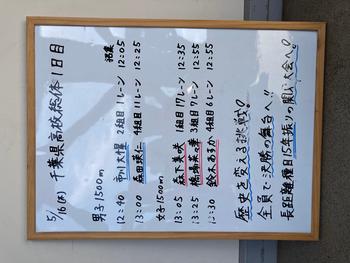 5/16(火) 千葉県高校総体1日目
招集
男子1500m
12:40 市川大惺 2組目 1レーン 12:05
13:00 森田瑛仁 4組目 11レーン 12:25
女子1500m
13:05 森下美咲 1組目 17レーン 12:35
13:25 橋場菜々華 3組目 7レーン 12:55
13:30 鈴木あすか 4組目 6レーン 12:55
歴史を変える挑戦!
全員で決勝の舞台へ!!
長距離種目15年振りの関東大会へ!